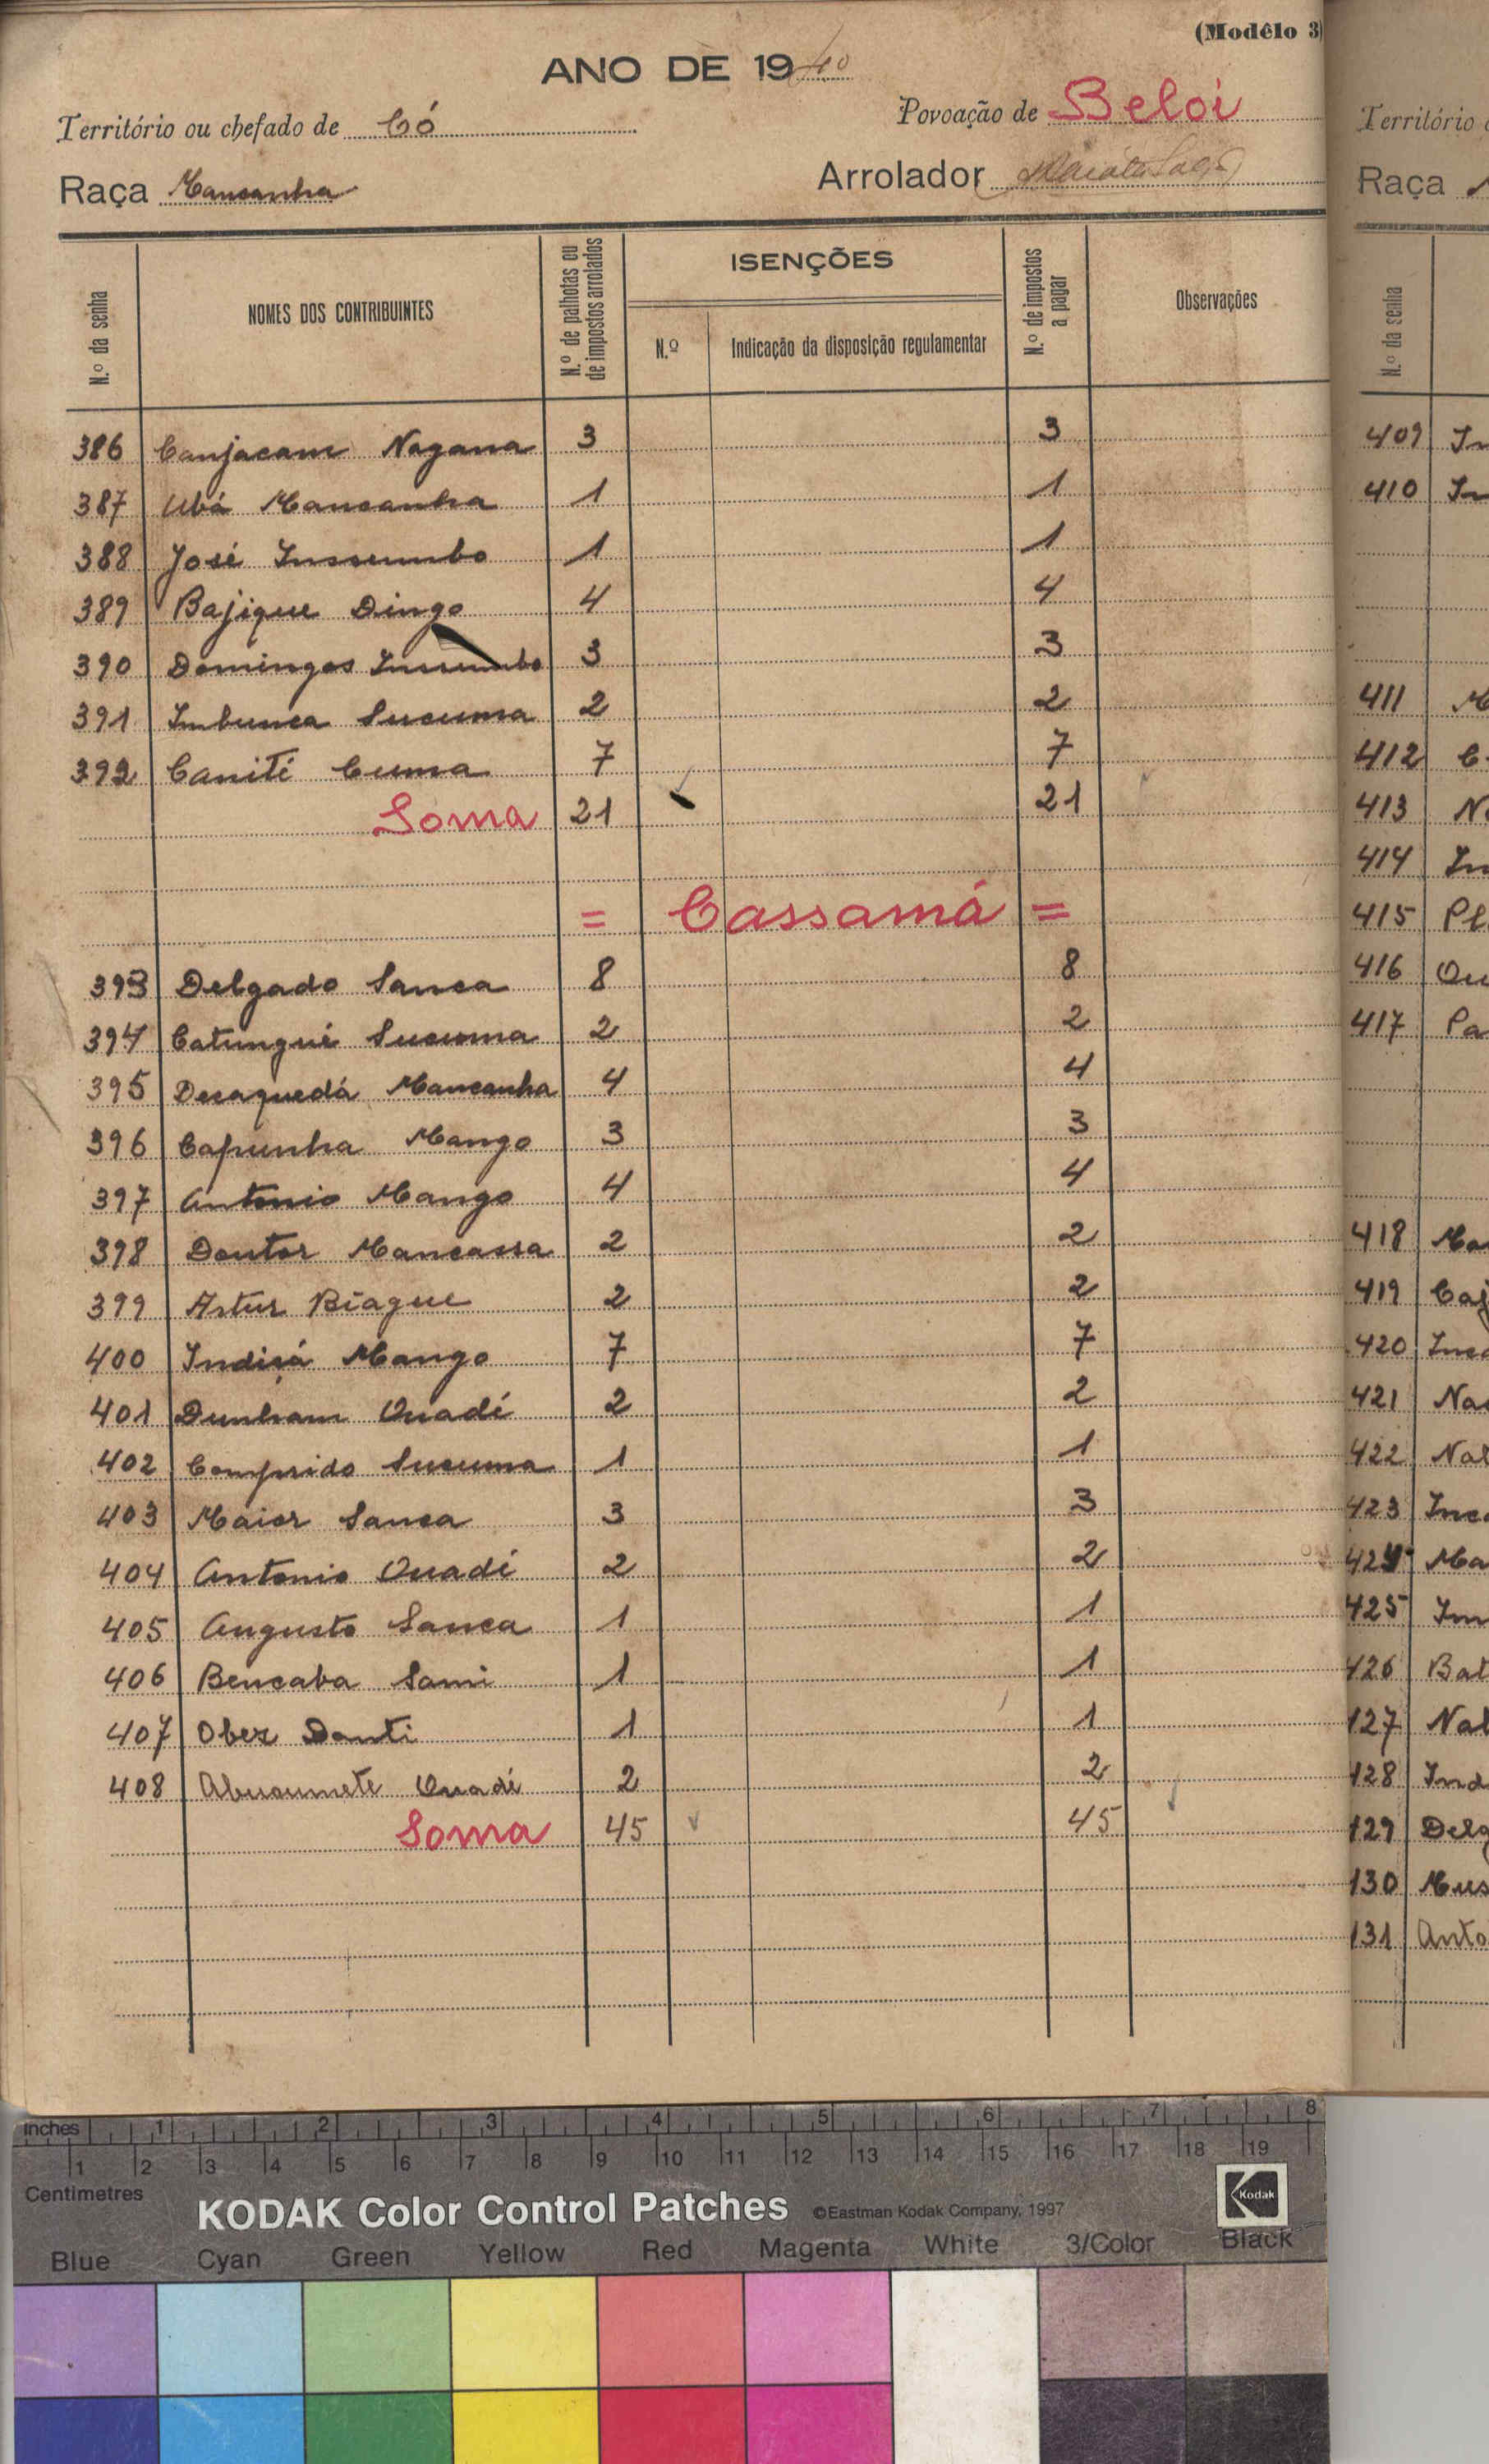 (Modêlo 3)
ANO DE 1940
Território ou chefado de Có
Povoação de Beloi
Raça Mancanha
Arrolador
N.º da senha
NOMES DOS CONTRIBUINTES
N.º de palhotas ou de impostos arrolados
ISENÇÕES
N.º
Indicação da disposição regulamentar
N.º de impostos a pagar
Observações
386 Canjacam Nagana 3 3
387 Ubá Mancanha 1 1
388 José Insumbo 1 1
389 Bajique Dingo 4 4
390 Domingos Insumbo 3 3
391 Imbunca Sucuma 2 2
392 Canité Cuma 7 7
Soma 21 21
= Cassamá =
393 Delgado Sanca 8 8
394 Catungué Sucuma 2 2
395 Decaquedá Mancanha 4 4
396 Capunha Mango 3 3
397 Antonio Mango 4 4
398 Doutor Mancassa 2 2
399 Artur Biague 2 2
400 Indiçá Mango 7 7
401 Dunham Ouadi 2 2
402 Comprido Sucuma 1 1
403 Maior Sanca 3 3
404 Antonio Ouadi 2 2
405 Augusto Sanca 1 1
406 Bencaba Sami 1 1
407 Ober Donti 1 1
408 Abucumete Ouadi 2 2
Soma 45 45
Território
Raça
N.º da senha
409 In
410 In
411 M
412 C
413 N
414 In
415 Pl
416 Ou
417 Pa
418 Ma
419 Caj
420 Inc
421 Na
422 Nal
423 Inc
424 Ma
425 Im
426 Bat
127 Nal
128 Ind
129 Delg
130 Mus
131 Anto
Inches 1 2 3 4 5 6 7 8
1 2 3 4 5 6 7 8 9 10 11 12 13 14 15 16 17 18 19
Centimetres
KODAK Color Control Patches ©Eastman Kodak Company, 1997 Kodak
Blue Cyan Green Yellow Red Magenta White 3/Color Black